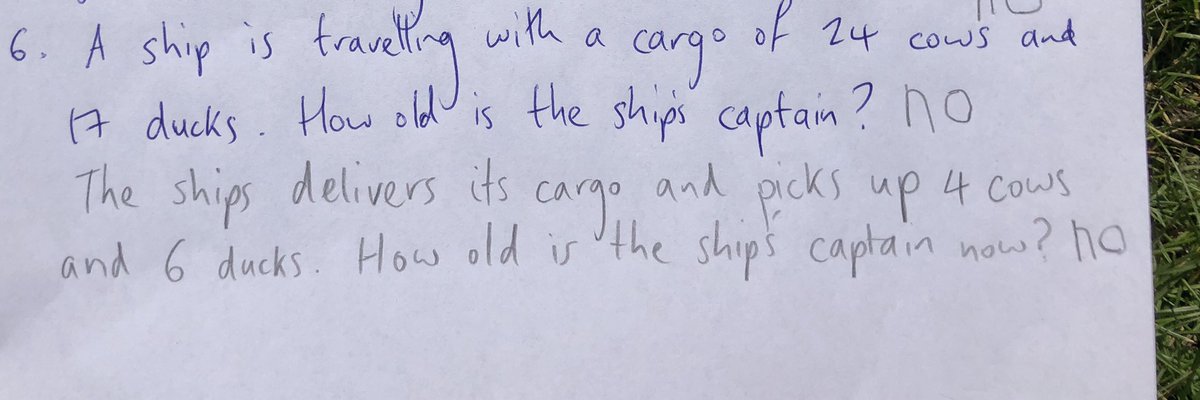 6. A ship is travelling with a cargo of 24 cows and
17 ducks. How old is the ship's captain? no
The ships delivers its cargo and picks up 4 cows
and 6 ducks. How old is the ship's captain now? no